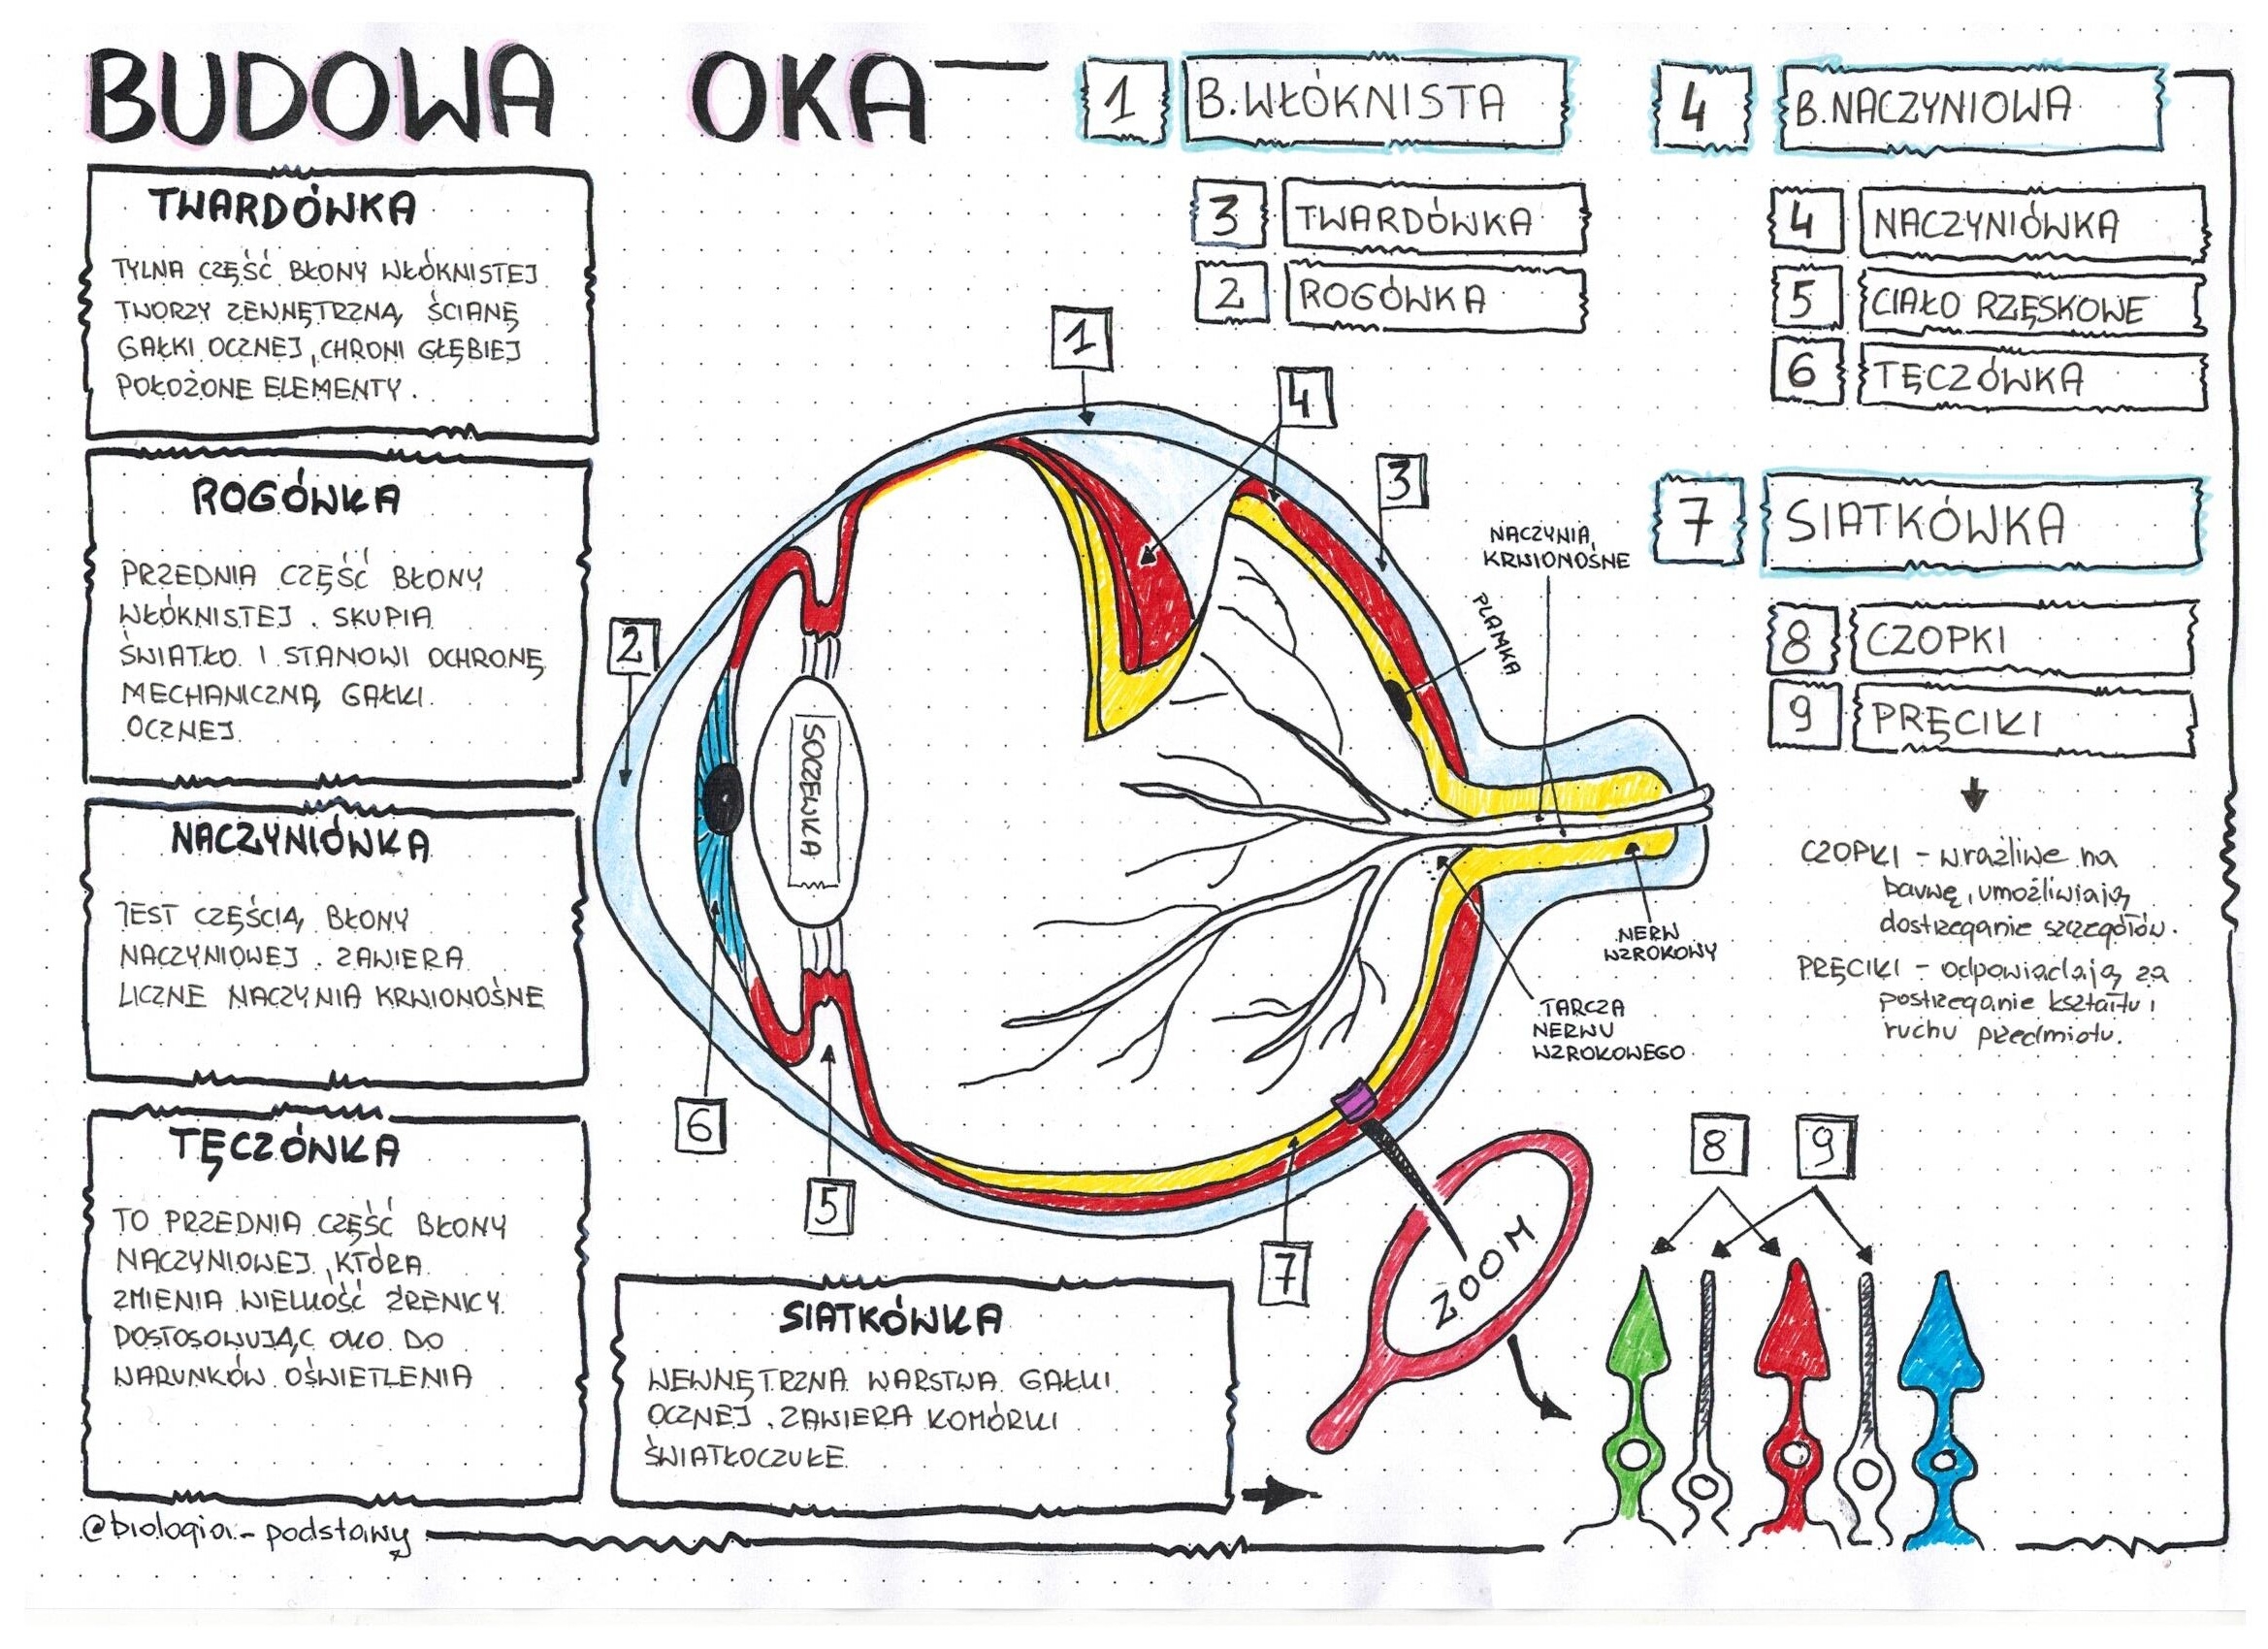 BUDOWA OKA
1 B.WŁÓKNISTA
3 TWARDÓWKA
2 ROGÓWKA
4 B.NACZYNIOWA
4 NACZYNIÓWKA
5 CIAŁO RZĘSKOWE
6 TĘCZÓWKA
7 SIATKÓWKA
8 CZOPKI
9 PRĘCIKI
CZOPKI - wrażliwe na
barwę, umożliwiają
dostrzeganie szczegółów.
PRĘCIKI - odpowiadają za
postrzeganie kształtu i
ruchu przedmiotu.
TWARDÓWKA
TYLNA CZĘŚĆ BŁONY WŁÓKNISTEJ
TWORZY ZEWNĘTRZNĄ ŚCIANĘ
GAŁKI OCZNEJ, CHRONI GŁĘBIEJ
POŁOŻONE ELEMENTY.
ROGÓWKA
PRZEDNIA CZĘŚĆ BŁONY
WŁÓKNISTEJ. SKUPIA
ŚWIATŁO I STANOWI OCHRONĘ
MECHANICZNĄ GAŁKI
OCZNEJ
NACZYNIÓWKA
JEST CZĘŚCIĄ BŁONY
NACZYNIOWEJ. ZAWIERA
LICZNE NACZYNIA KRWIONOŚNE
TĘCZÓWKA
TO PRZEDNIA CZĘŚĆ BŁONY
NACZYNIOWEJ, KTÓRA
ZMIENIA WIELKOŚĆ ŹRENICY
DOSTOSOWUJĄC OKO DO
WARUNKÓW OŚWIETLENIA
SIATKÓWKA
WEWNĘTRZNA WARSTWA GAŁKI
OCZNEJ. ZAWIERA KOMÓRKI
ŚWIATŁOCZUŁE
1
4
3
2
NACZYNIA
KRWIONOŚNE
PLAMKA
SOCZEWKA
NERW
WZROKOWY
TARCZA
NERWU
WZROKOWEGO
6
5
7
ZOOM
8
9
@biologia_podstawy